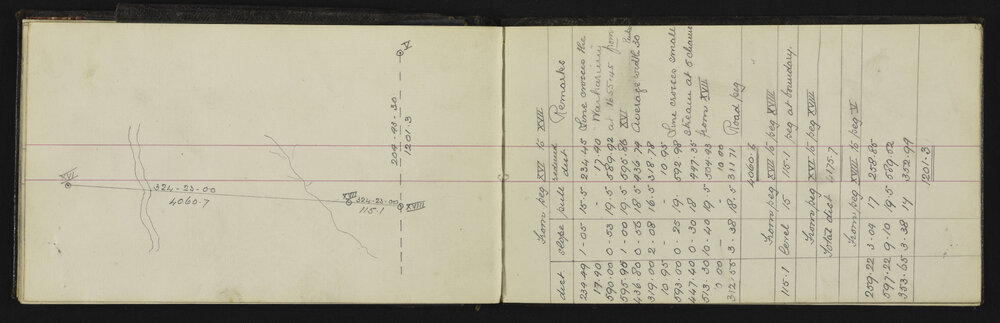 V
209-43-30
1201.3
XVI
324-23-00
4060.7
XVII
324-23-00
115.1
XVIII
From peg XVI to XVII
dist slope pull reduced dist Remarks
234.49 1-05 15.5 234.45 Line crosses the
17.40 - 17.40
590.00 0-53 19.5 589.92 at 1655.45 from
595.95 1-00 19.5 595.86 XVI
436.80 0-56 18.5 436.74 Average width 30
319.00 2-08 16.5 318.78
10.95 - 10.95
593.00 0-25 19. 592.98 Line crosses small
447.40 0-30 18 447.35 stream at 5 chains
513.30 10-40 19.5 504.43 from XVII
0.00 - 10.00
312.55 3-38 18.5 311.71 Road peg
4060.6
From peg XVII to peg XVIII
115.1 level 15 115.1 peg at boundary.
From peg XVI to peg XVIII
Total dist 4175.7
From peg XVIII to peg V
259.22 3-09 17 258.85
597.22 9-10 19.5 589.52
353.65 3-38 17 352.99
1201.3